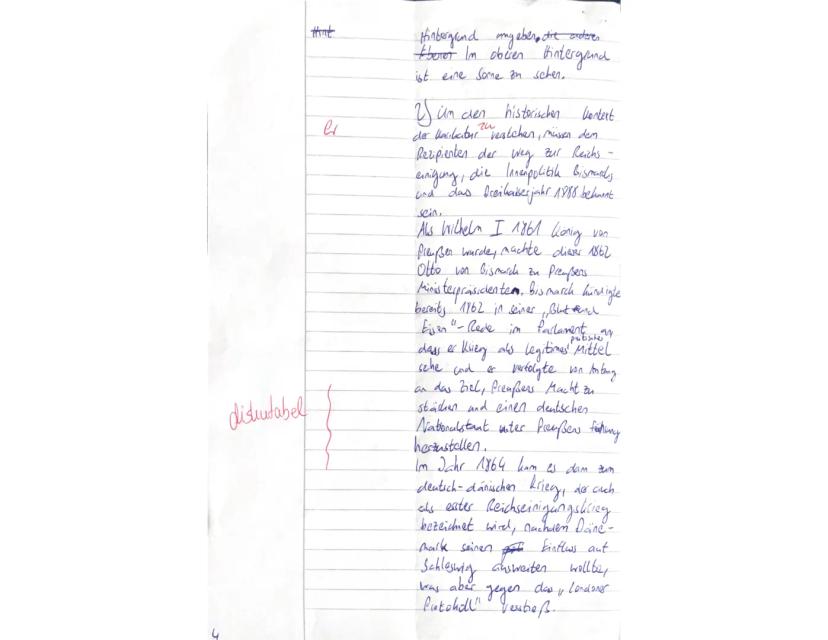 Hint
Hintergrund umgeben, die anderen
Ebenen Im oberen Hintergrund
ist eine Sonne zu sehen.
2) Um den historischen Kontext
der Karikatur zu verstehen, müssen dem
Rezipienten der Weg zur Reichs-
einigung, die Innenpolitik Bismarcks
und das Dreikaiserjahr 1888 bekannt
sein.
Als Wilhelm I 1861 König von
Preußen wurde, machte dieser 1862
Otto von Bismarck zu Preußens
Ministerpräsidenten. Bismarck kündigte
bereits 1862 in seiner „Blut und
Eisen"-Rede im Parlament an
dass er Krieg als legitimes politisches Mittel
sehe und er verfolgte von Anfang
an das Ziel, Preußens Macht zu
stärken und einen deutschen
Nationalstaat unter Preußens Führung
herzustellen.
diskutabel
Im Jahr 1864 kam es dann zum
deutsch-dänischen Krieg, der auch
als erster Reichseinigungskrieg
bezeichnet wird, nachdem Däne-
mark seinen Einfluss auf
Schleswig ausweiten wollte,
was aber gegen das „Londoner
Protokoll" verstieß.
4